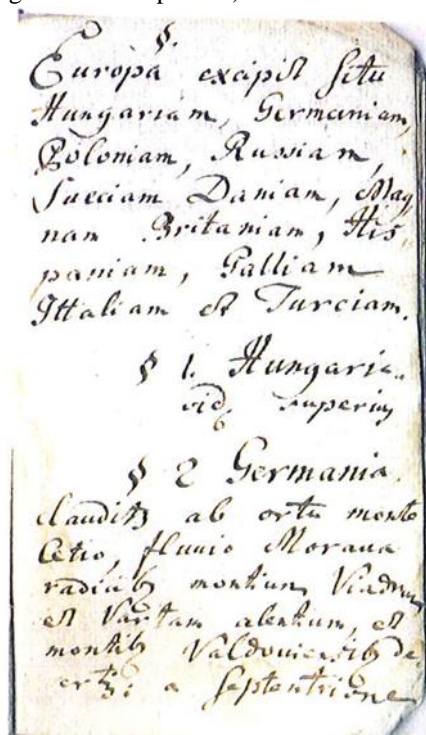 §.
Europa excipit situ
Hungariam, Germaniam,
Poloniam, Russiam,
Sueciam Daniam, Mag,
nam Britaniam, His,
paniam, Galliam
Ittaliam et Turciam.
§ 1. Hungaria.
vid superius
§ 2 Germania.
clauditz ab ortu monte
Cetio, fluvio Morava
radicibz montium Viadrum
et Vartam alentium, et
montibz Valdoviensibz de
a Septentrione